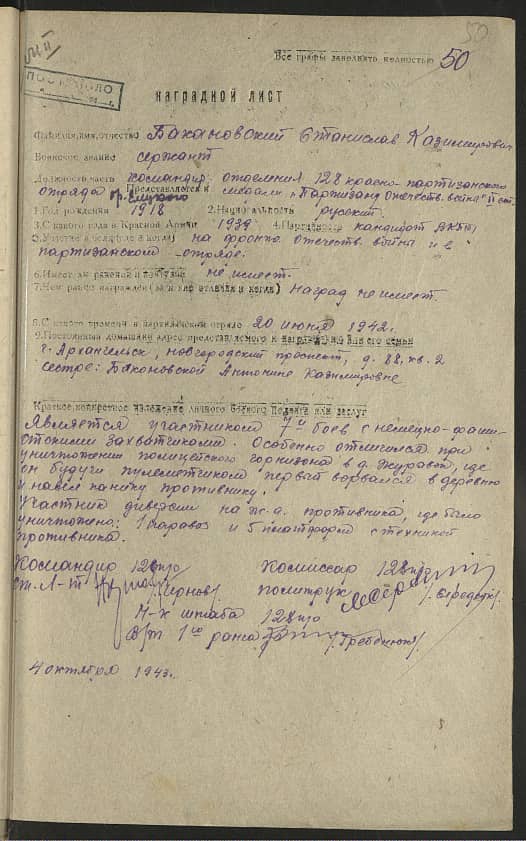 50
Все графы заполнять полностью 50
НАГРАДНОЙ ЛИСТ
Фамилия, имя, отчество Бахановский Станислав Казимирович
Воинское звание сержант
Должность часть командир отделения 128 красно-партизанского
отряда
Представляется к медали "Партизану отечеств. войны" II ст.
1.Год рождения 1918 2.Национальность русский
3.С какого года в Красной Армии 1939 4.Партийность кандидат ВКП/б/
5.Участие в на фронте отечеств. войны и в
партизанском отряде.
6.Имеет ли ранения и не имеет.
7.Чем ранее награжден (за какие отличия и когда) Наград не имеет.
8.С какого времени в партизанском отряде 20 июня 1942г.
9.Постоянный домашний адрес представляемого к награждению и его семьи
г. Архангельск, новгородский проспект, д. 88, кв. 2
сестре: Бахоновской Антонине Казимировне
Краткое, конкретное изложение личного боевого подвига или заслуг
Является участником 7и боев с немецко-фаши-
стскими захватчиками. Особенно отличился при
уничтожении полицейского горнизона в д. Журавок, где
он будучи пулеметчиком первый ворвался в деревню
и навел панику противнику.
Участник диверсии на ж.д. противника, где было
уничтожено: 1 паровоз и 5 платформ с техникой
противника.
Командир 128кпо Комиссар 128кпо
ст. л-т /Чернов/ политрук
Н-к штаба 128кпо
в/т 1го ранга /Гребенюк/
4 октября 1943г.